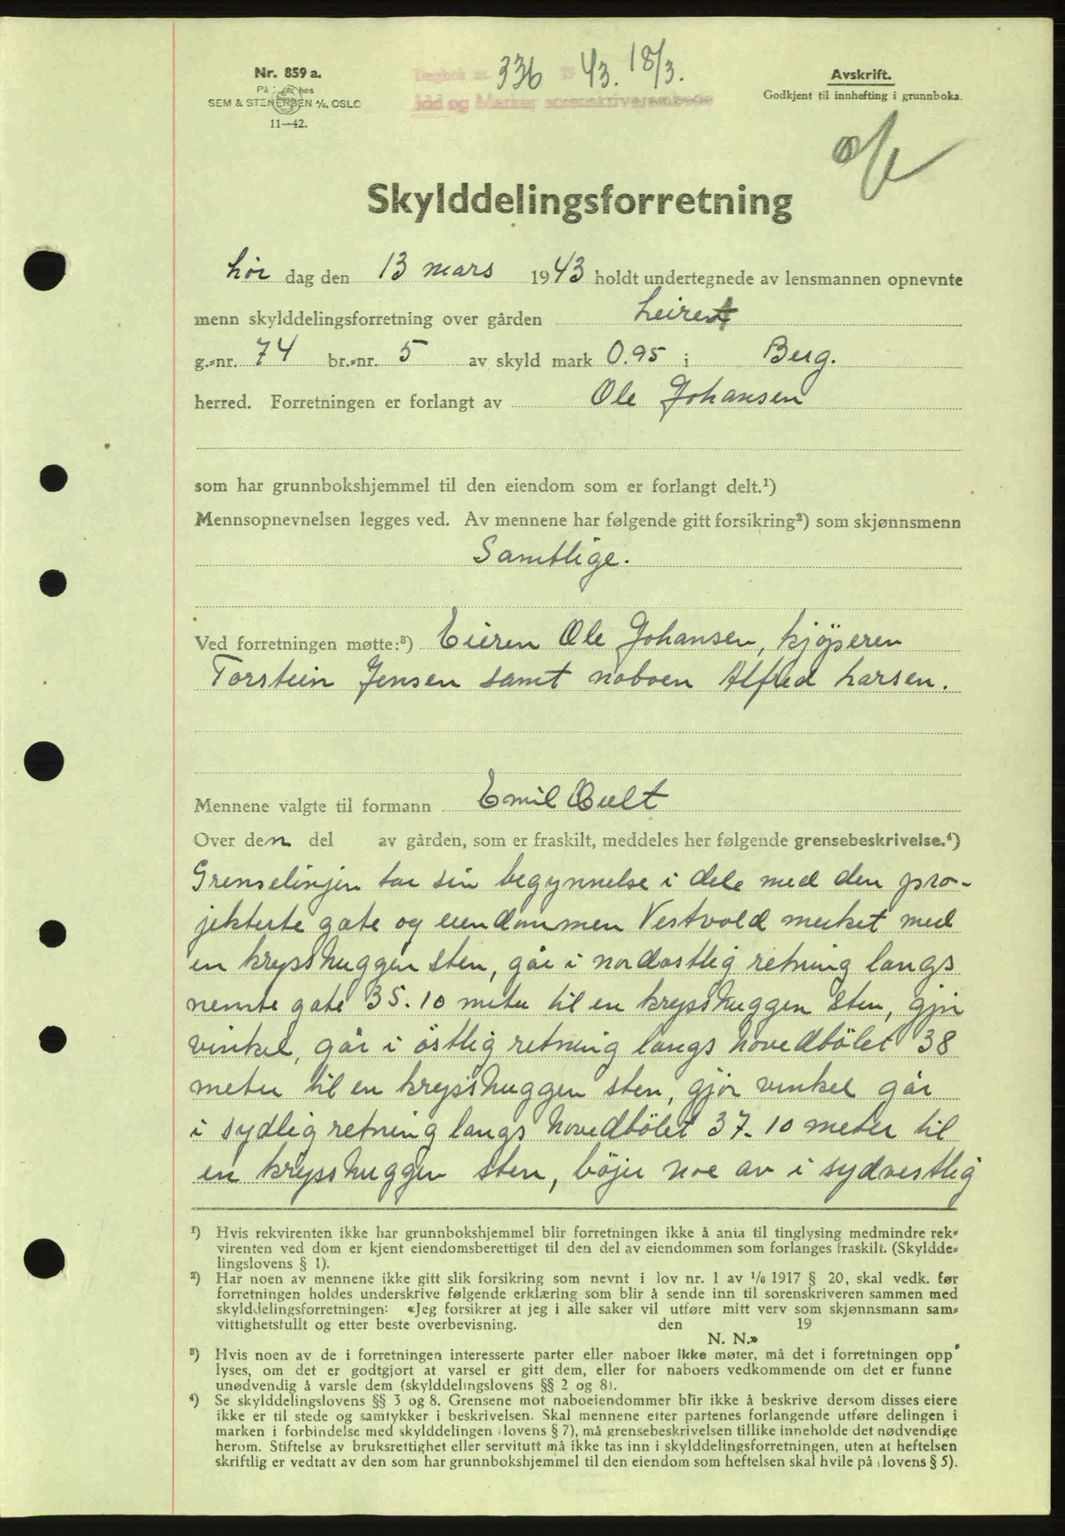 Nr. 859 a.
SEM & STENERSEN A/S, OSLO
11—42.
Dagbok nr. 336 43. 18/3.
Idd og Marker sorenskriverembede
Avskrift.
Godkjent til innhefting i grunnboka.
Skylddelingsforretning
Lør dag den 13 mars 1943 holdt undertegnede av lensmannen opnevnte
menn skylddelingsforretning over gården Leiret
g.-nr. 74 br.-nr. 5 av skyld mark 0.95 i Berg.
herred. Forretningen er forlangt av Ole Johansen
som har grunnbokshjemmel til den eiendom som er forlangt delt.¹)
Mennsopnevnelsen legges ved. Av mennene har følgende gitt forsikring²) som skjønnsmenn
Samtlige.
Ved forretningen møtte:³) Eieren Ole Johansen, kjøperen
Torstein Jensen samt naboen Alfred Larsen.
Mennene valgte til formann Emil Qult
Over den del av gården, som er fraskilt, meddeles her følgende grensebeskrivelse.⁴)
Grenselinjen tar sin begynnelse i dele med den pro-
jekterte gate og eiendommen Vestvold merket med
en krysshuggen sten, går i nordostlig retning langs
nemte gate 35.10 meter til en krysshuggen sten, gjør
vinkel, går i östlig retning langs hovedbölet 38
meter til en krysshuggen sten, gjör vinkel går
i sydlig retning langs hovedbölet 37.10 meter til
en krysshuggen sten, böjer noe av i sydvestlig
¹) Hvis rekvirenten ikke har grunnbokshjemmel blir forretningen ikke å anta til tinglysing medmindre rek-
virenten ved dom er kjent eiendomsberettiget til den del av eiendommen som forlanges fraskilt. (Skyldde-
lingslovens § 1).
²) Har noen av mennene ikke gitt slik forsikring som nevnt i lov nr. 1 av 1/6 1917 § 20, skal vedk. før
forretningen holdes underskrive følgende erklæring som blir å sende inn til sorenskriveren sammen med
skylddelingsforretningen: «Jeg forsikrer at jeg i alle saker vil utføre mitt verv som skjønnsmann sam-
vittighetsfullt og etter beste overbevisning. den 19
N. N.»
³) Hvis noen av de i forretningen interesserte parter eller naboer ikke møter, må det i forretningen opp-
lyses, om det er godtgjort at varsel er gitt dem, eller for naboers vedkommende om det er funne
unødvendig å varsle dem (skylddelingslovens §§ 2 og 8).
⁴) Se skylddelingslovens §§ 3 og 8. Grensene mot naboeiendommer blir ikke å beskrive dersom disses eiere
ikke er til stede og samtykker i beskrivelsen. Skal mennene etter partenes forlangende utføre delingen i
marken i forbindelse med skylddelingen (lovens § 7), må grensebeskrivelsen tillike inneholde det nødvendige
herom. Stiftelse av bruksrettighet eller servitutt må ikke tas inn i skylddelingsforretningen, uten at heftelsen
skriftlig er vedtatt av den som har grunnbokshjemmel til den eiendom som heftelsen skal hvile på (lovens § 5).